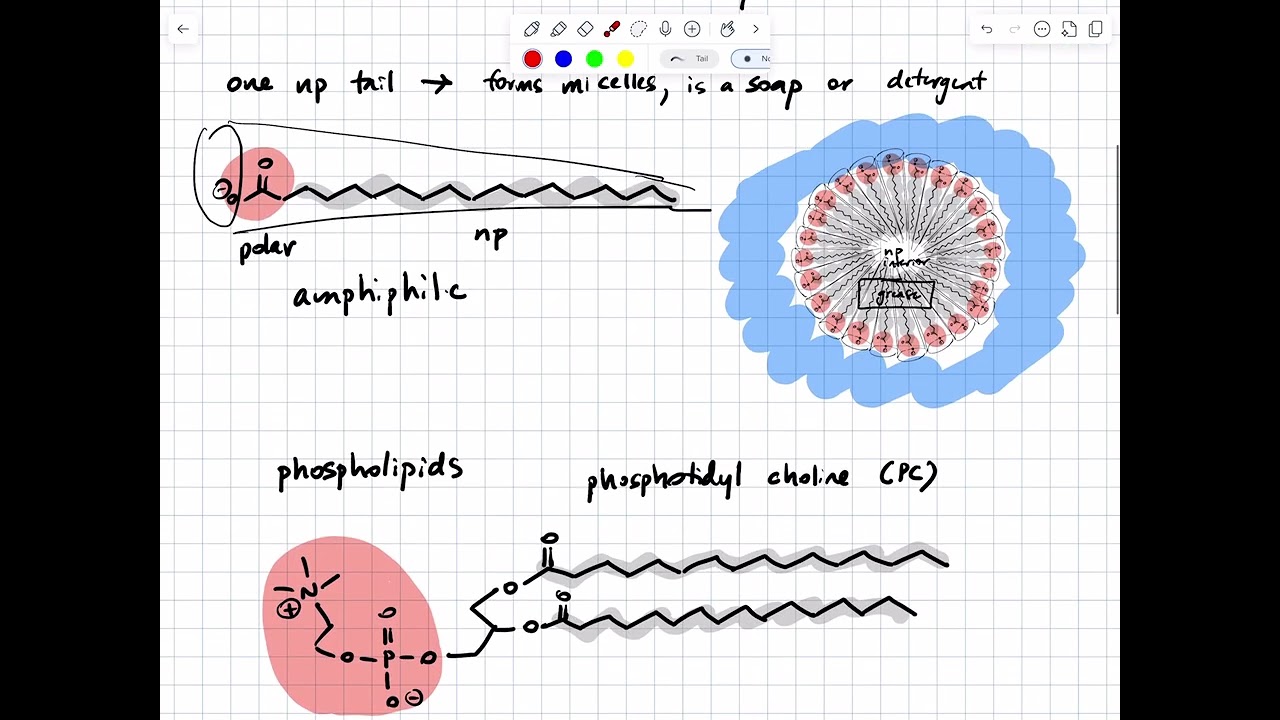 Tail
No
one np tail → forms micelles, is a soap or detergent
⊖O
O
polar
np
amphiphilic
np
interior
grease
phospholipids
phosphotidyl choline (PC)
O
O
O
O
N
⊕
O
O-P-O
O⊖